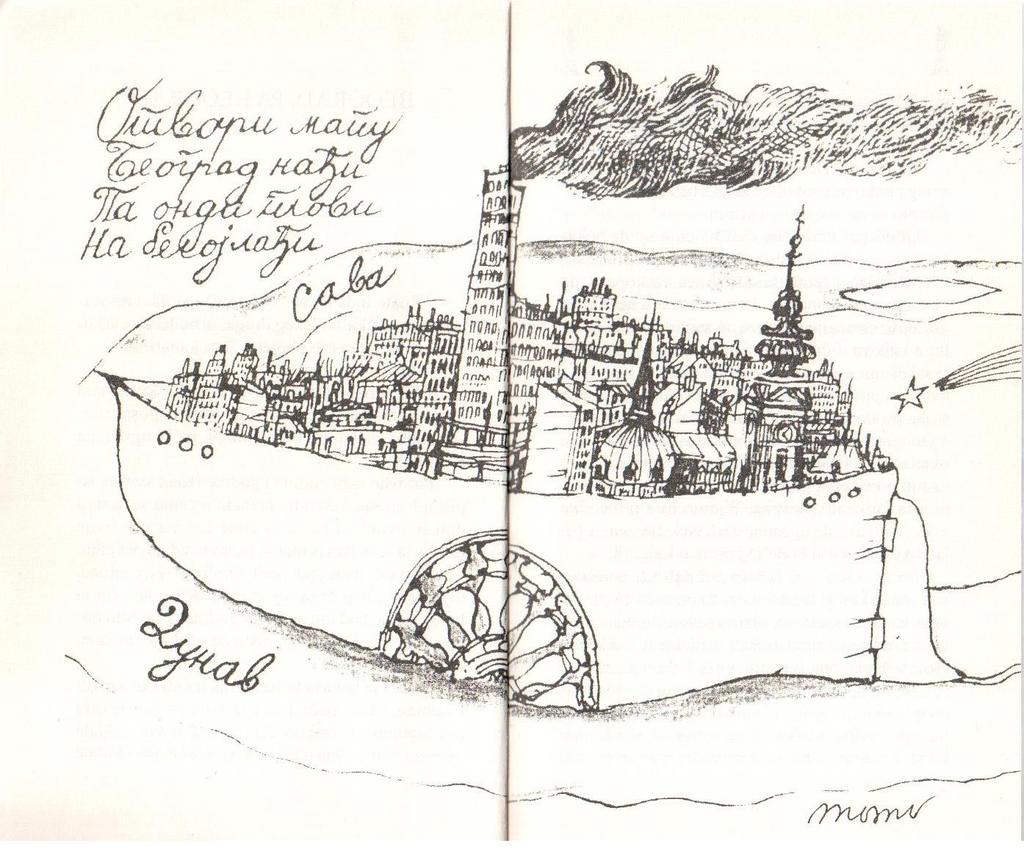 Отвори мапу
Београд нађи
Па онди плови
На белој лађи
Сава
Дунав
momo